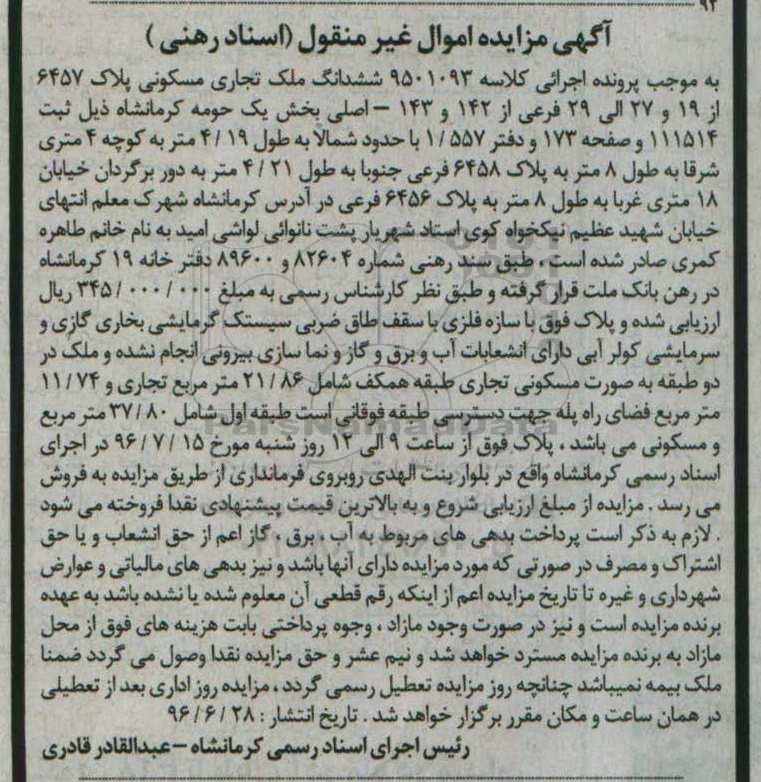 ۹۲
آگهی مزایده اموال غیر منقول (اسناد رهنی)
به موجب پرونده اجرائی کلاسه ۹۵۰۱۰۹۳ ششدانگ ملک تجاری مسکونی پلاک ۶۴۵۷
از ۱۹ و ۲۷ الی ۲۹ فرعی از ۱۴۲ و ۱۴۳ – اصلی بخش یک حومه کرمانشاه ذیل ثبت
۱۱۱۵۱۴ و صفحه ۱۷۳ و دفتر ۱/۵۵۷ با حدود شمالاً به طول ۴/۱۹ متر به کوچه ۴ متری
شرقا به طول ۸ متر به پلاک ۶۴۵۸ فرعی جنوبا به طول ۴/۲۱ متر به دور برگردان خیابان
۱۸ متری غربا به طول ۸ متر به پلاک ۶۴۵۶ فرعی در آدرس کرمانشاه شهرک معلم انتهای
خیابان شهید عظیم نیکخواه کوی استاد شهریار پشت نانوائی لواشی امید به نام خانم طاهره
کمری صادر شده است، طبق سند رهنی شماره ۸۲۶۰۴ و ۸۹۶۰۰ دفتر خانه ۱۹ کرمانشاه
در رهن بانک ملت قرار گرفته و طبق نظر کارشناس رسمی به مبلغ ۳۴۵/۰۰۰/۰۰۰ ریال
ارزیابی شده و پلاک فوق با سازه فلزی با سقف طاق ضربی سیستک گرمایشی بخاری گازی و
سرمایشی کولر آبی دارای انشعابات آب و برق و گاز و نما سازی بیرونی انجام نشده و ملک در
دو طبقه به صورت مسکونی تجاری طبقه همکف شامل ۲۱/۸۶ متر مربع تجاری و ۱۱/۷۴
متر مربع فضای راه پله جهت دسترسی طبقه فوقانی است طبقه اول شامل ۳۷/۸۰ متر مربع
و مسکونی می باشد، پلاک فوق از ساعت ۹ الی ۱۲ روز شنبه مورخ ۹۶/۷/۱۵ در اجرای
اسناد رسمی کرمانشاه واقع در بلوار بنت الهدی روبروی فرمانداری از طریق مزایده به فروش
می رسد. مزایده از مبلغ ارزیابی شروع و به بالاترین قیمت پیشنهادی نقدا فروخته می شود
. لازم به ذکر است پرداخت بدهی های مربوط به آب، برق، گاز اعم از حق انشعاب و یا حق
اشتراک و مصرف در صورتی که مورد مزایده دارای آنها باشد و نیز بدهی های مالیاتی و عوارض
شهرداری و غیره تا تاریخ مزایده اعم از اینکه رقم قطعی آن معلوم شده یا نشده باشد به عهده
برنده مزایده است و نیز در صورت وجود مازاد، وجوه پرداختی بابت هزینه های فوق از محل
مازاد به برنده مزایده مسترد خواهد شد و نیم عشر و حق مزایده نقدا وصول می گردد ضمنا
ملک بیمه نمیباشد چنانچه روز مزایده تعطیل رسمی گردد، مزایده روز اداری بعد از تعطیلی
در همان ساعت و مکان مقرر برگزار خواهد شد. تاریخ انتشار: ۹۶/۶/۲۸
رئیس اجرای اسناد رسمی کرمانشاه – عبدالقادر قادری
ParsNamadData